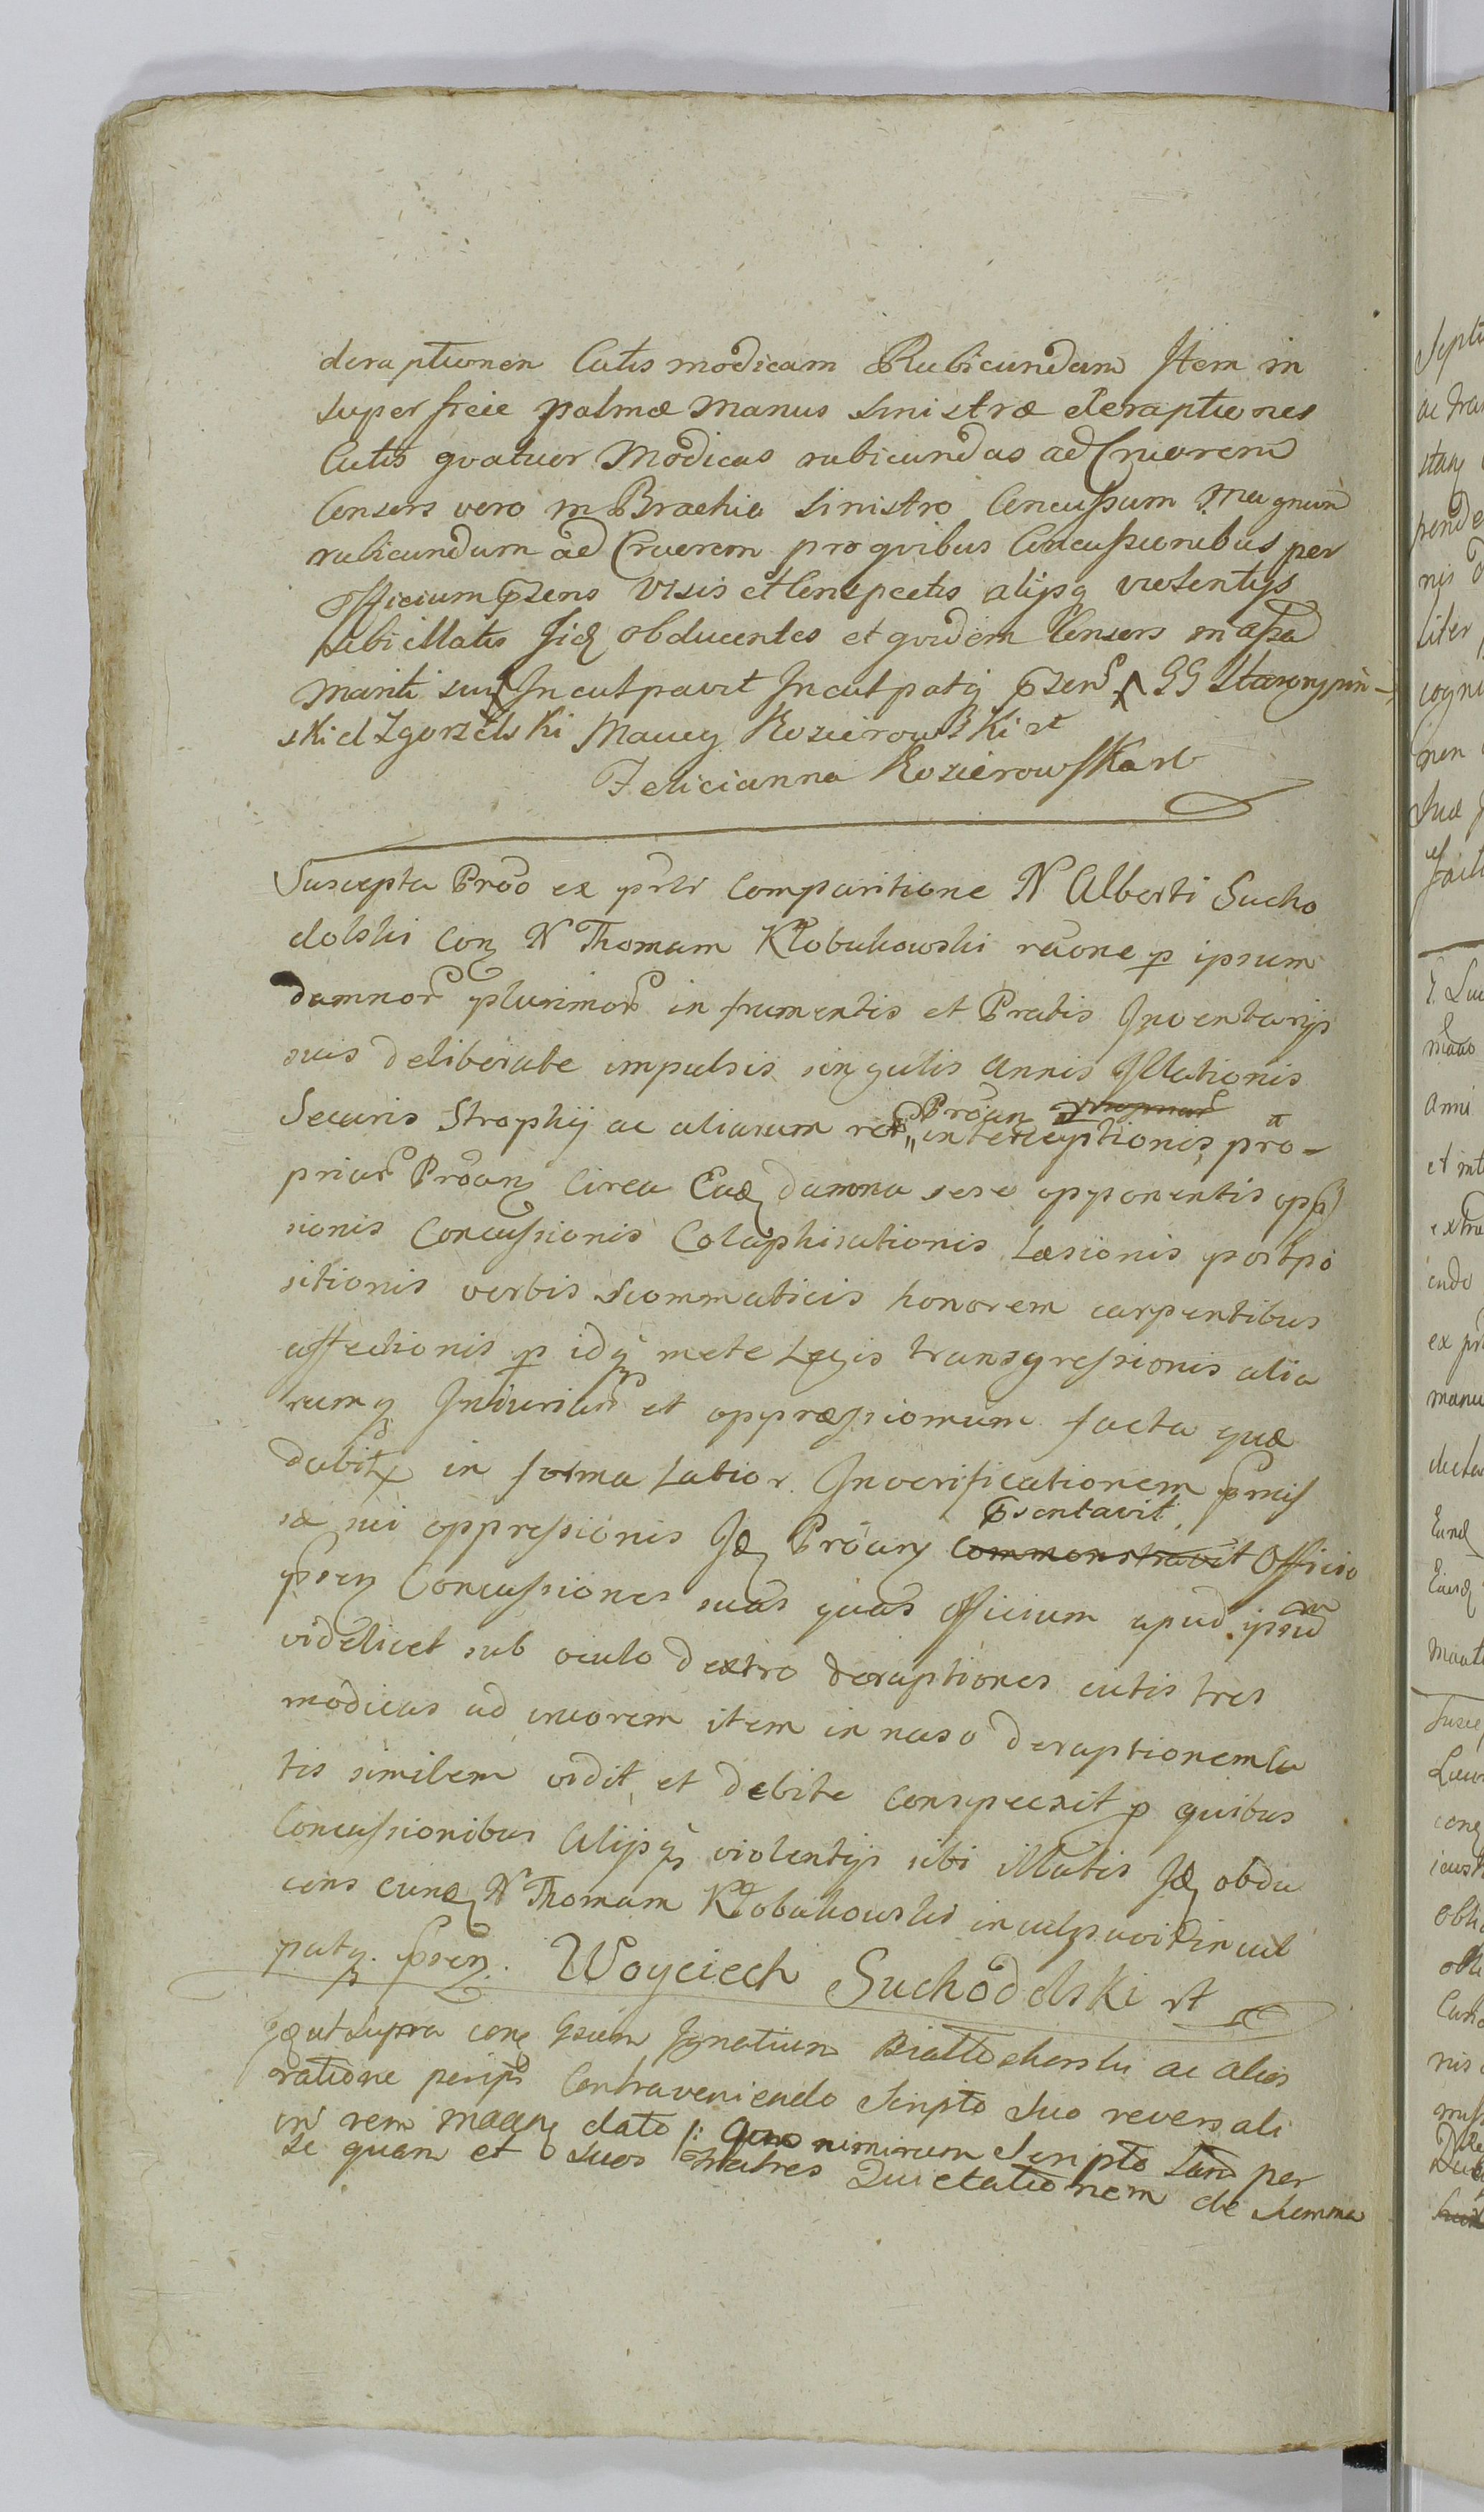 deraptionen Cutis modicam Rubicundam Item in
superficie palmæ manus sinistræ deraptiones
Cutis qvatuor Modicas rubicundas ad Cruorem
Consors vero in Brachio sinistro Concussum magnum
rubicundum ad Cruorem pro qvibus Concussionibus per
Officium Pzens visis et Conspectis alijsq violentijs
sibi illatis Jid obducentes et qvidem Consors in assa
Mariti sui Inculpavit Inculpatq GG Starozypin-
ski et Zgorzelski Maciey Kosierowski rt
Felicianna KosierowsKa rt
Suscepta Prõo ex prlr Comparitione N Alberti Sucho
dolski Con N Thomam Kłobukowski rãone p ipsum
damnor plurimor in frumentis et Pratis Inventarijs
suis deliberate impulsis singulis Annis Illationis
Securis Strophij ac aliarum rer Prõan interceptionis prã-
priar Prõanz Circa Eadz damna sese opponentis opp
sionis Concussionis Colaphisationis Læsionis postpo
sitionis verbis Scommaticis honorem carpentibus
affectionis p idq metæ Legis transgressionis alia
rumq Iniuriar et oppræssionum facta quæ
dabitr in forma Latior. In verificationem
sæ sui oppressionis Jdz Prõanz commonstravit Psentavit Officio
Psenz Concussiones suas quas Officium apud ipsum
videlicet sub oculo dextro deraptiones cutis tres
modicas ad cruorem item in naso deraptionem Cu
tis similem vidit et debite conspecxit p quibus
Concussionibus Alijsqz violentijs sibi illatis Jdz obdu
cens eundz N Thomam Kłobukowski inculpavit incul
patq. Psenz. Woyciech Suchodolski rt
Jd ut supra conz Gsum Ignatium ac alios
ratione per ips Contraveniendo Scripto suo reversali
in rem dato /: Quo nimirum Scripto suo per
se quam et suos fratres Quietationem de Summa